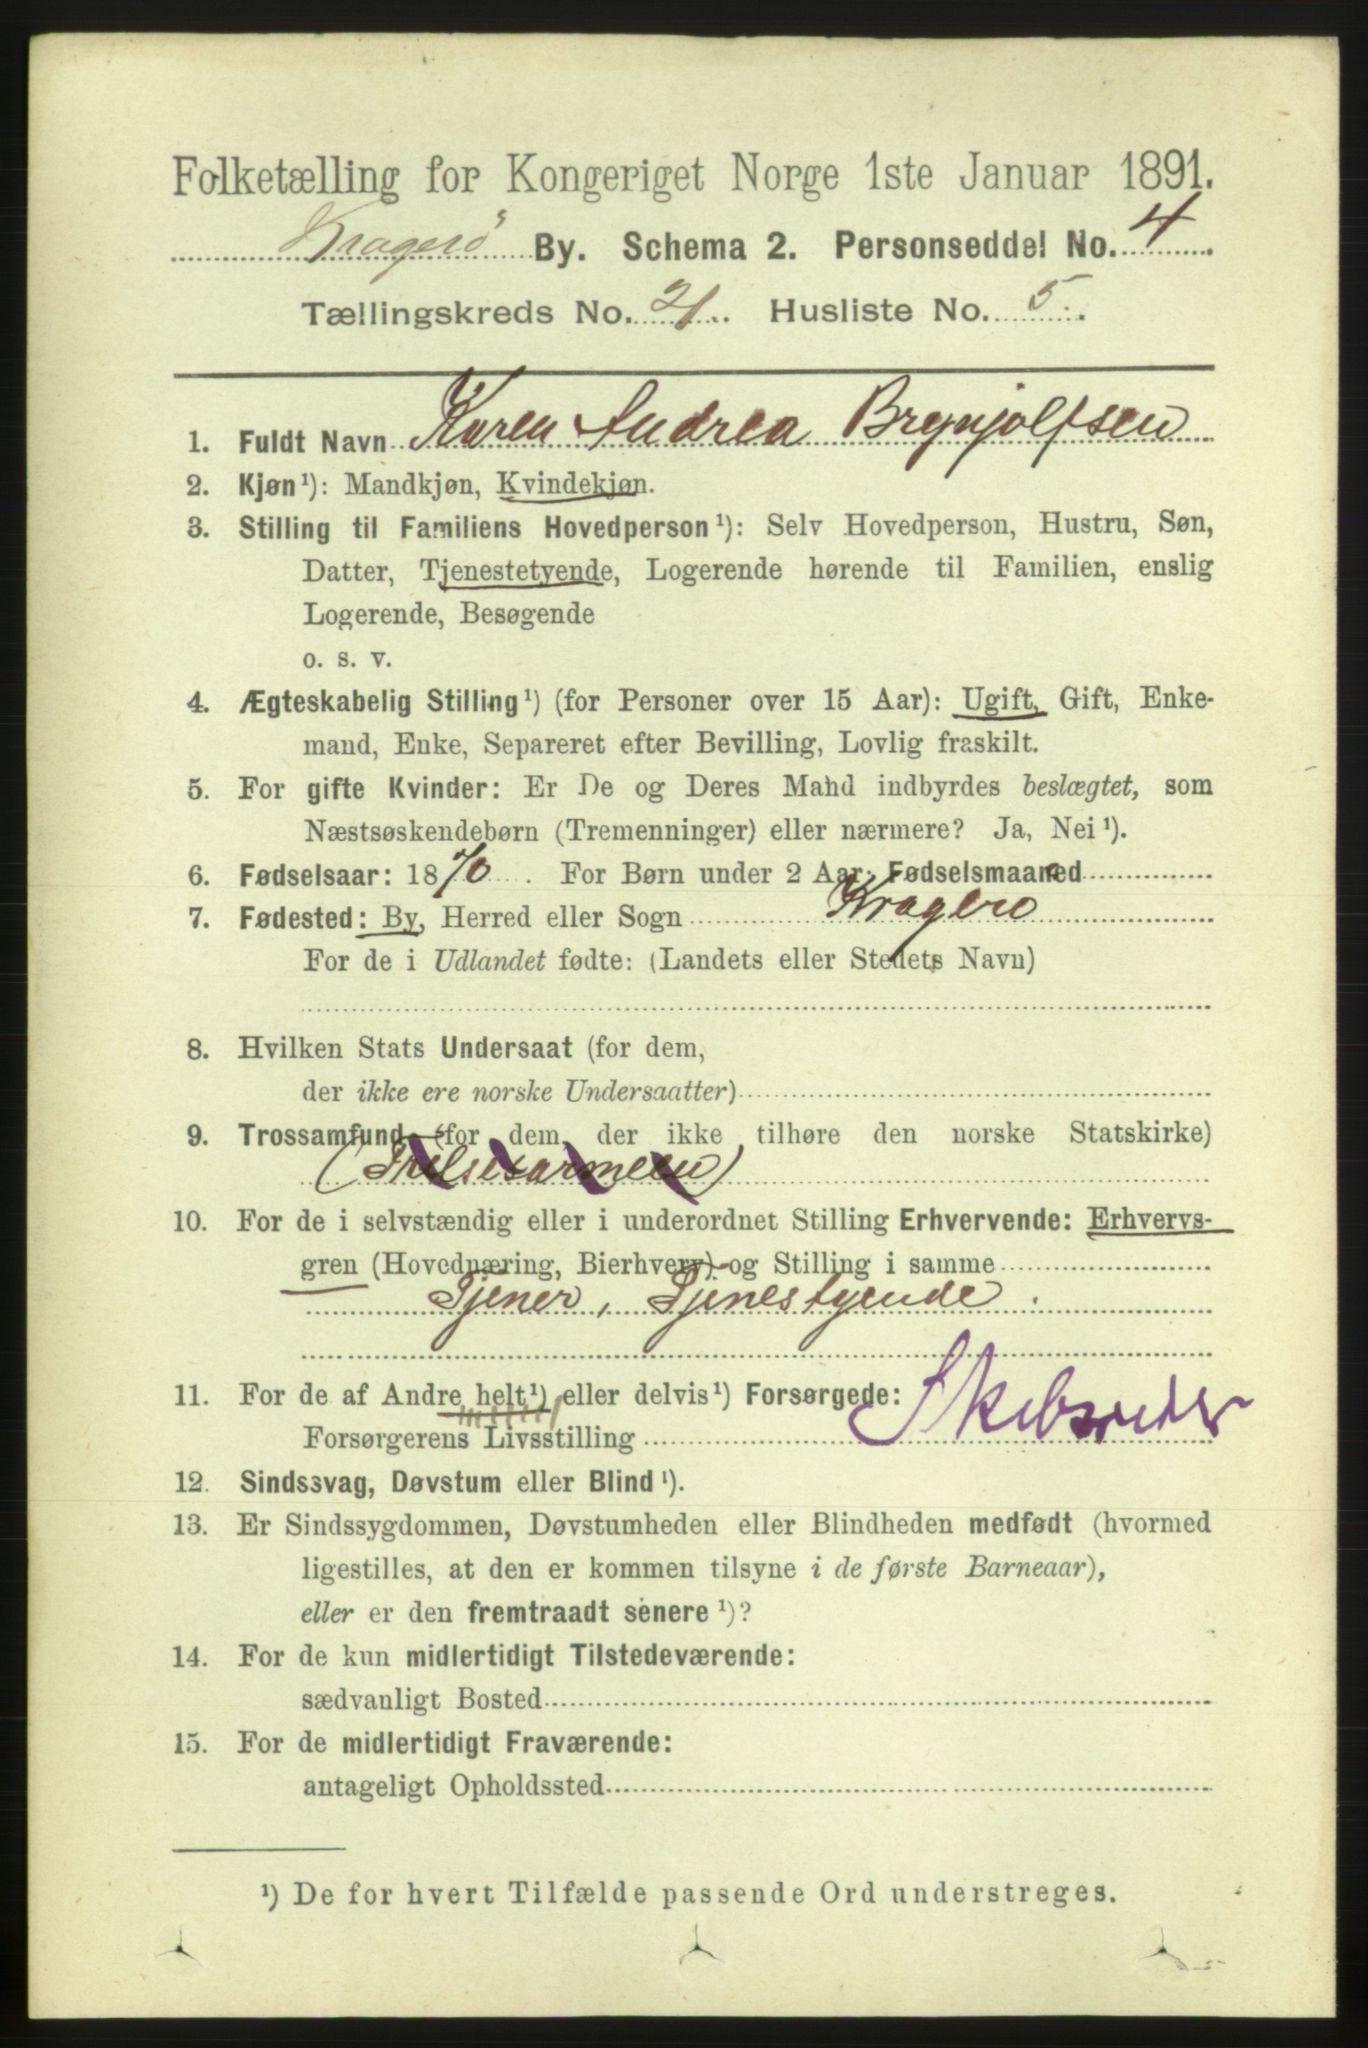 Folketælling for Kongeriget Norge 1ste Januar 1891.
Kragerö By. Schema 2. Personseddel No. 4
Tællingskreds No. 21. Husliste No. 5.
1. Fuldt Navn Karen Andrea Brynjolfsen
2. Kjøn¹): Mandkjøn, Kvindekjøn.
3. Stilling til Familiens Hovedperson¹): Selv Hovedperson, Hustru, Søn,
Datter, Tjenestetyende, Logerende hørende til Familien, enslig
Logerende, Besøgende
o. s. v.
4. Ægteskabelig Stilling¹) (for Personer over 15 Aar): Ugift, Gift, Enke-
mand, Enke, Separeret efter Bevilling, Lovlig fraskilt.
5. For gifte Kvinder: Er De og Deres Mand indbyrdes beslægtet, som
Næstsøskendebørn (Tremenninger) eller nærmere? Ja, Nei¹).
6. Fødselsaar: 1870. For Børn under 2 Aar: Fødselsmaaned
7. Fødested: By, Herred eller Sogn Kragerö
For de i Udlandet fødte: (Landets eller Stedets Navn)
8. Hvilken Stats Undersaat (for dem,
der ikke ere norske Undersaatter)
9. Trossamfund (for dem, der ikke tilhøre den norske Statskirke)
(Frelsesarmeen)
10. For de i selvstændig eller i underordnet Stilling Erhvervende: Erhvervs-
gren (Hovednæring, Bierhverv) og Stilling i samme
Tjener, Tjenestyende.
11. For de af Andre helt¹) eller delvis¹) Forsørgede:
Forsørgerens Livsstilling Skibsreder
12. Sindssvag, Døvstum eller Blind¹).
13. Er Sindssygdommen, Døvstumheden eller Blindheden medfødt (hvormed
ligestilles, at den er kommen tilsyne i de første Barneaar),
eller er den fremtraadt senere¹)?
14. For de kun midlertidigt Tilstedeværende:
sædvanligt Bosted
15. For de midlertidigt Fraværende:
antageligt Opholdssted
¹) De for hvert Tilfælde passende Ord understreges.